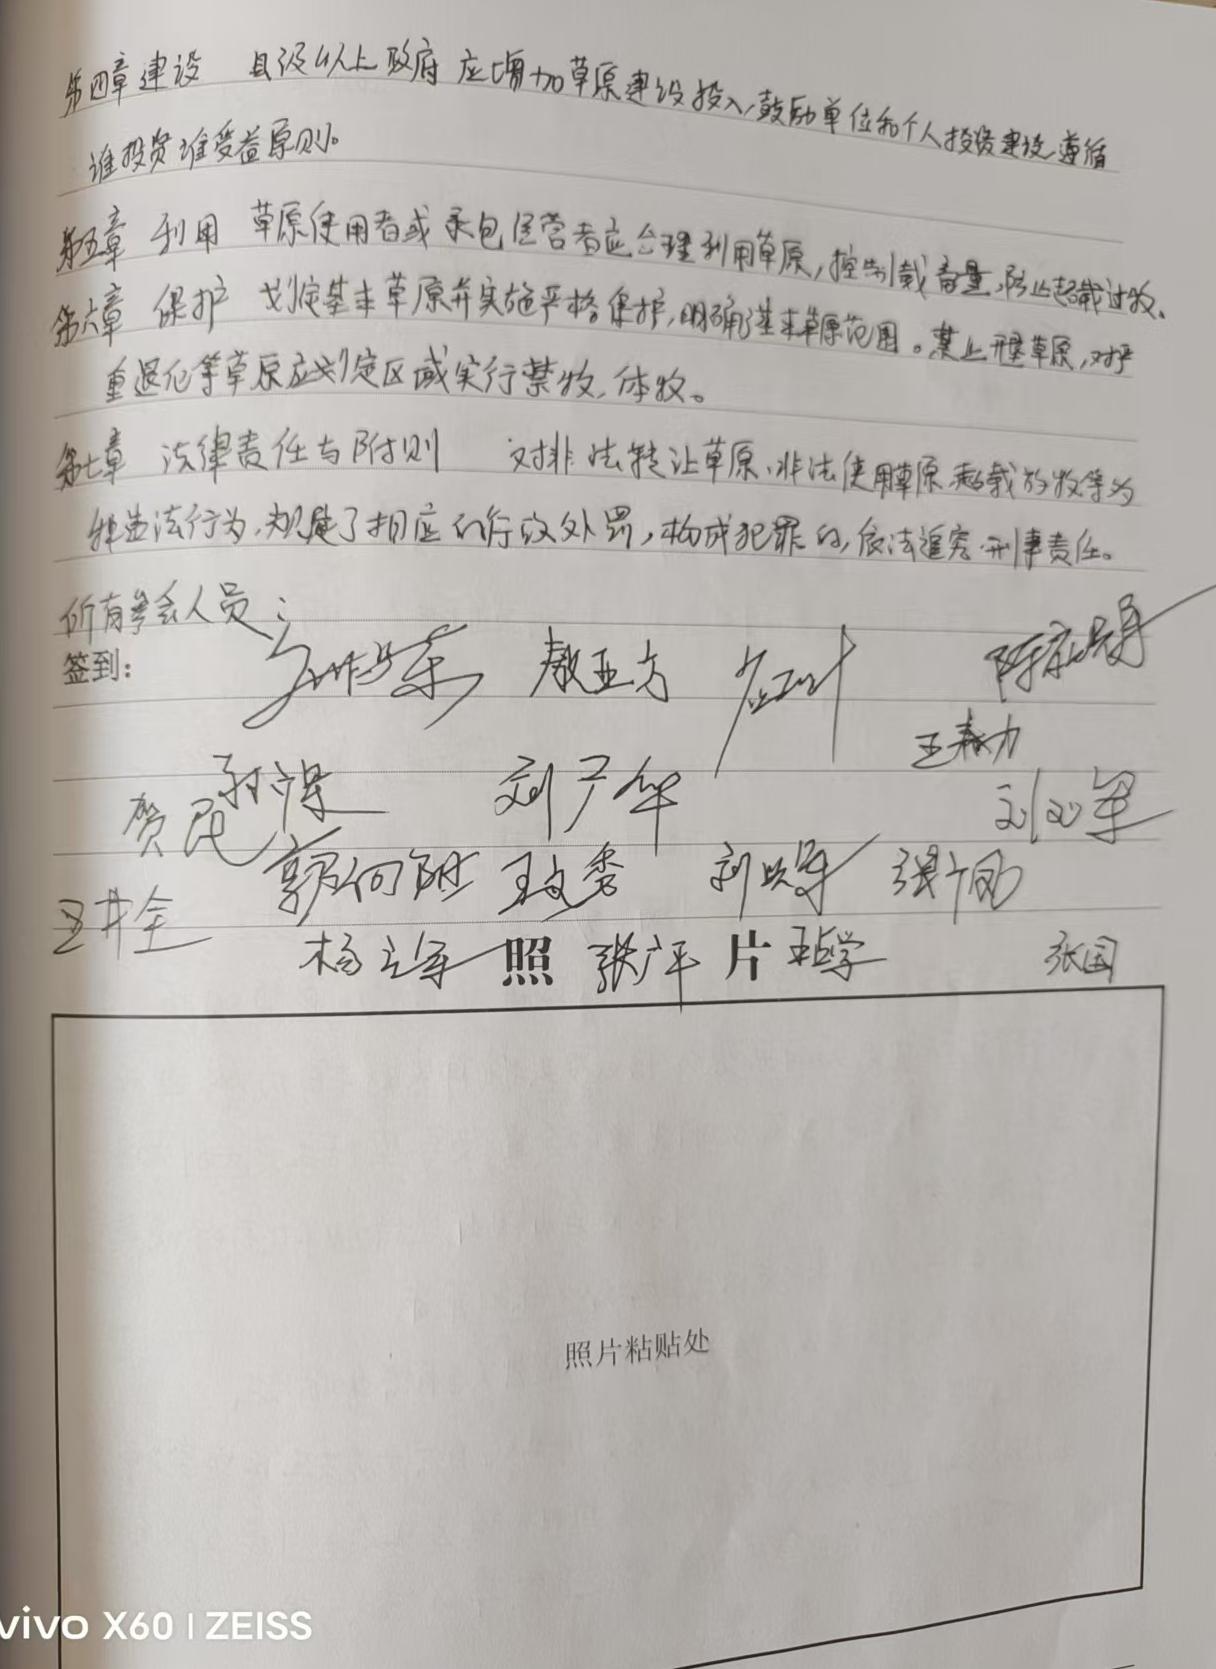 第四章 建设 县级以上政府 应增加草原建设投入,鼓励单位和个人投资建设,遵循
谁投资谁受益原则。
第五章 利用 草原使用者或承包经营者应合理利用草原,控制载畜量,防止超载过牧、
第六章 保护 划定基本草原并实施严格保护,明确基本草原范围。禁止开垦草原,对严
重退化等草原应划定区域实行禁牧、休牧。
第七章 法律责任与附则 对非法转让草原、非法使用草原、超载放牧等
违法行为,规定了相应的行政处罚,构成犯罪的,依法追究刑事责任。
所有参会人员:
签到:
敖亚方
王春力
刘广华
贺民
张广凤
杨立军 照 张广平 片
张国
照片粘贴处
vivo X60 | ZEISS